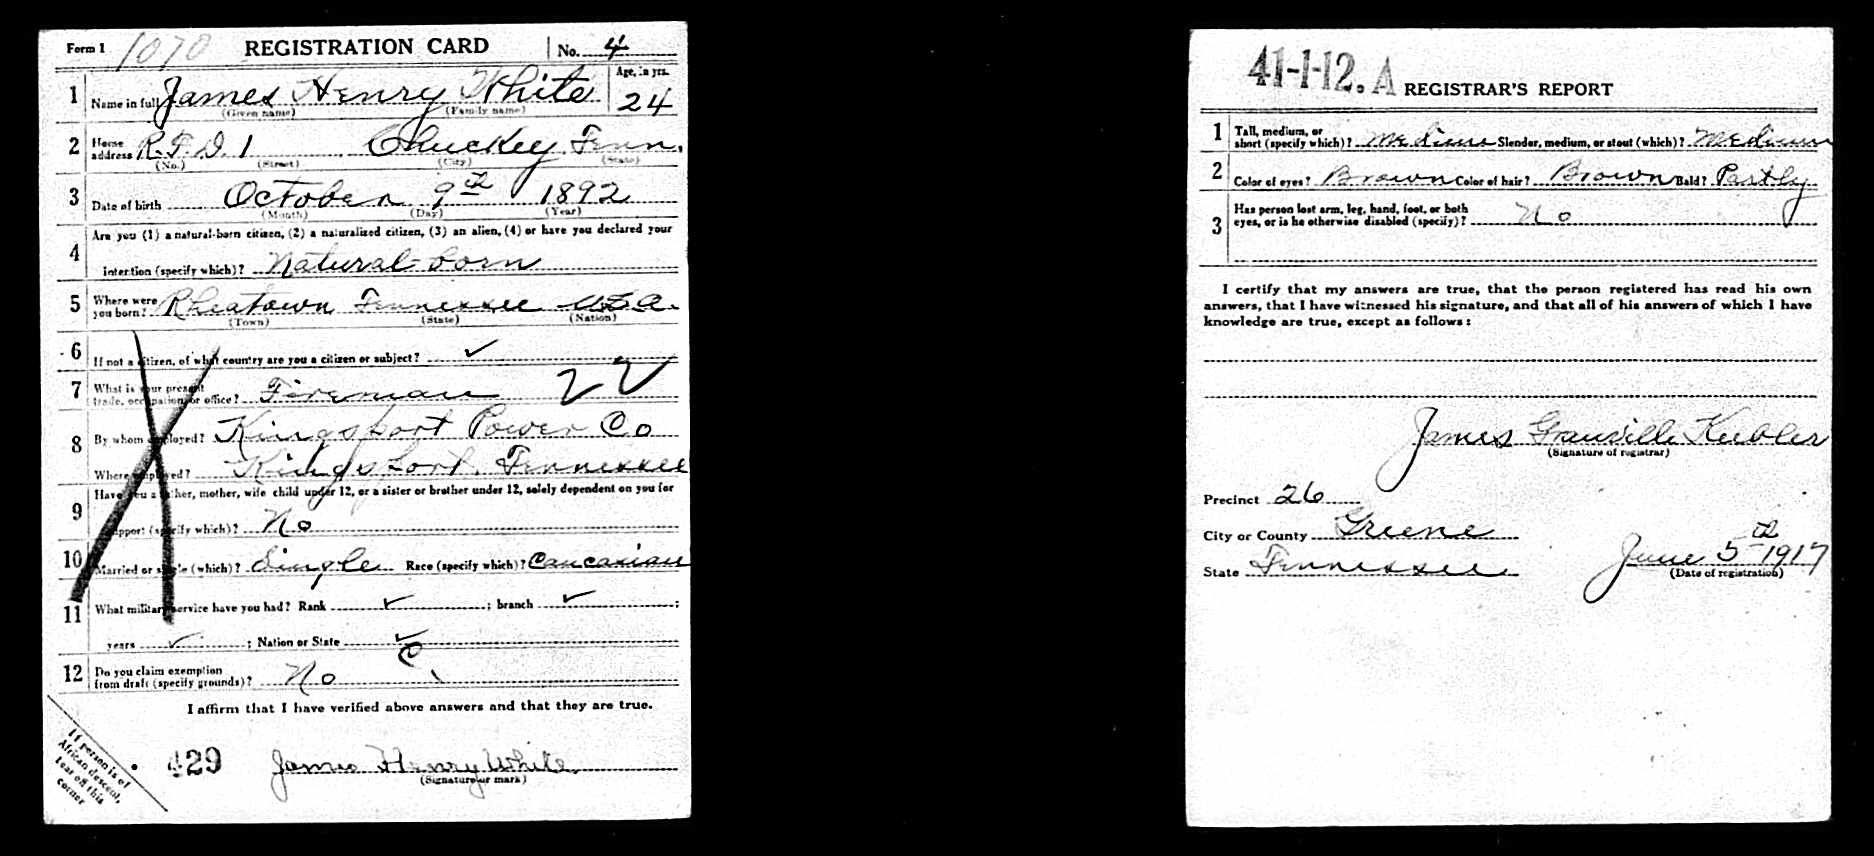 Form 1 1070 REGISTRATION CARD No. 4
1 Name in full James Henry White Age, in yrs. 24
(Given name) (Family name)
2 Home address R.F.D. 1 Chuckey Tenn.
(No.) (Street) (City) (State)
3 Date of birth October 9th 1892
(Month) (Day) (Year)
4 Are you (1) a natural-born citizen, (2) a naturalized citizen, (3) an alien, (4) or have you declared your
intention (specify which)? Natural-born
5 Where were you born? Rheatown Tennessee U.S.A.
(Town) (State) (Nation)
6 If not a citizen, of what country are you a citizen or subject? ✓
7 What is your present trade, occupation, or office? Fireman
8 By whom employed? Kingsport Power Co
Where employed? Kingsport, Tennessee
9 Have you a father, mother, wife child under 12, or a sister or brother under 12, solely dependent on you for
support (specify which)? No
10 Married or single (which)? Single Race (specify which)? Caucasian
11 What military service have you had? Rank ✓ ; branch ✓ ;
years ✓ ; Nation or State ✓
12 Do you claim exemption from draft (specify grounds)? No
I affirm that I have verified above answers and that they are true.
If person is of
African descent,
tear off this
corner
429 James Henry White
(Signature or mark)
41-1-12. A REGISTRAR'S REPORT
1 Tall, medium, or short (specify which)? Medium Slender, medium, or stout (which)? Medium
2 Color of eyes? Brown Color of hair? Brown Bald? Partly
3 Has person lost arm, leg, hand, foot, or both
eyes, or is he otherwise disabled (specify)? No
I certify that my answers are true, that the person registered has read his own
answers, that I have witnessed his signature, and that all of his answers of which I have
knowledge are true, except as follows:
James Granville Keebler
(Signature of registrar)
Precinct 26
City or County Greene
State Tennessee June 5th 1917
(Date of registration)